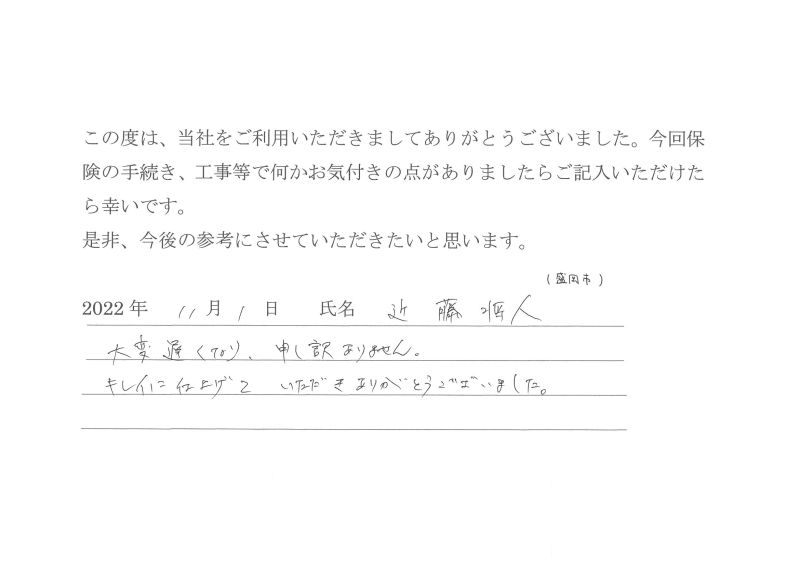 この度は、当社をご利用いただきましてありがとうございました。今回保
険の手続き、工事等で何かお気付きの点がありましたらご記入いただけた
ら幸いです。
是非、今後の参考にさせていただきたいと思います。
(盛岡市)
2022年 11月 1日 氏名 近藤 将人
大変遅くなり、申し訳ありません。
キレイに仕上げて いただきありがとうございました。